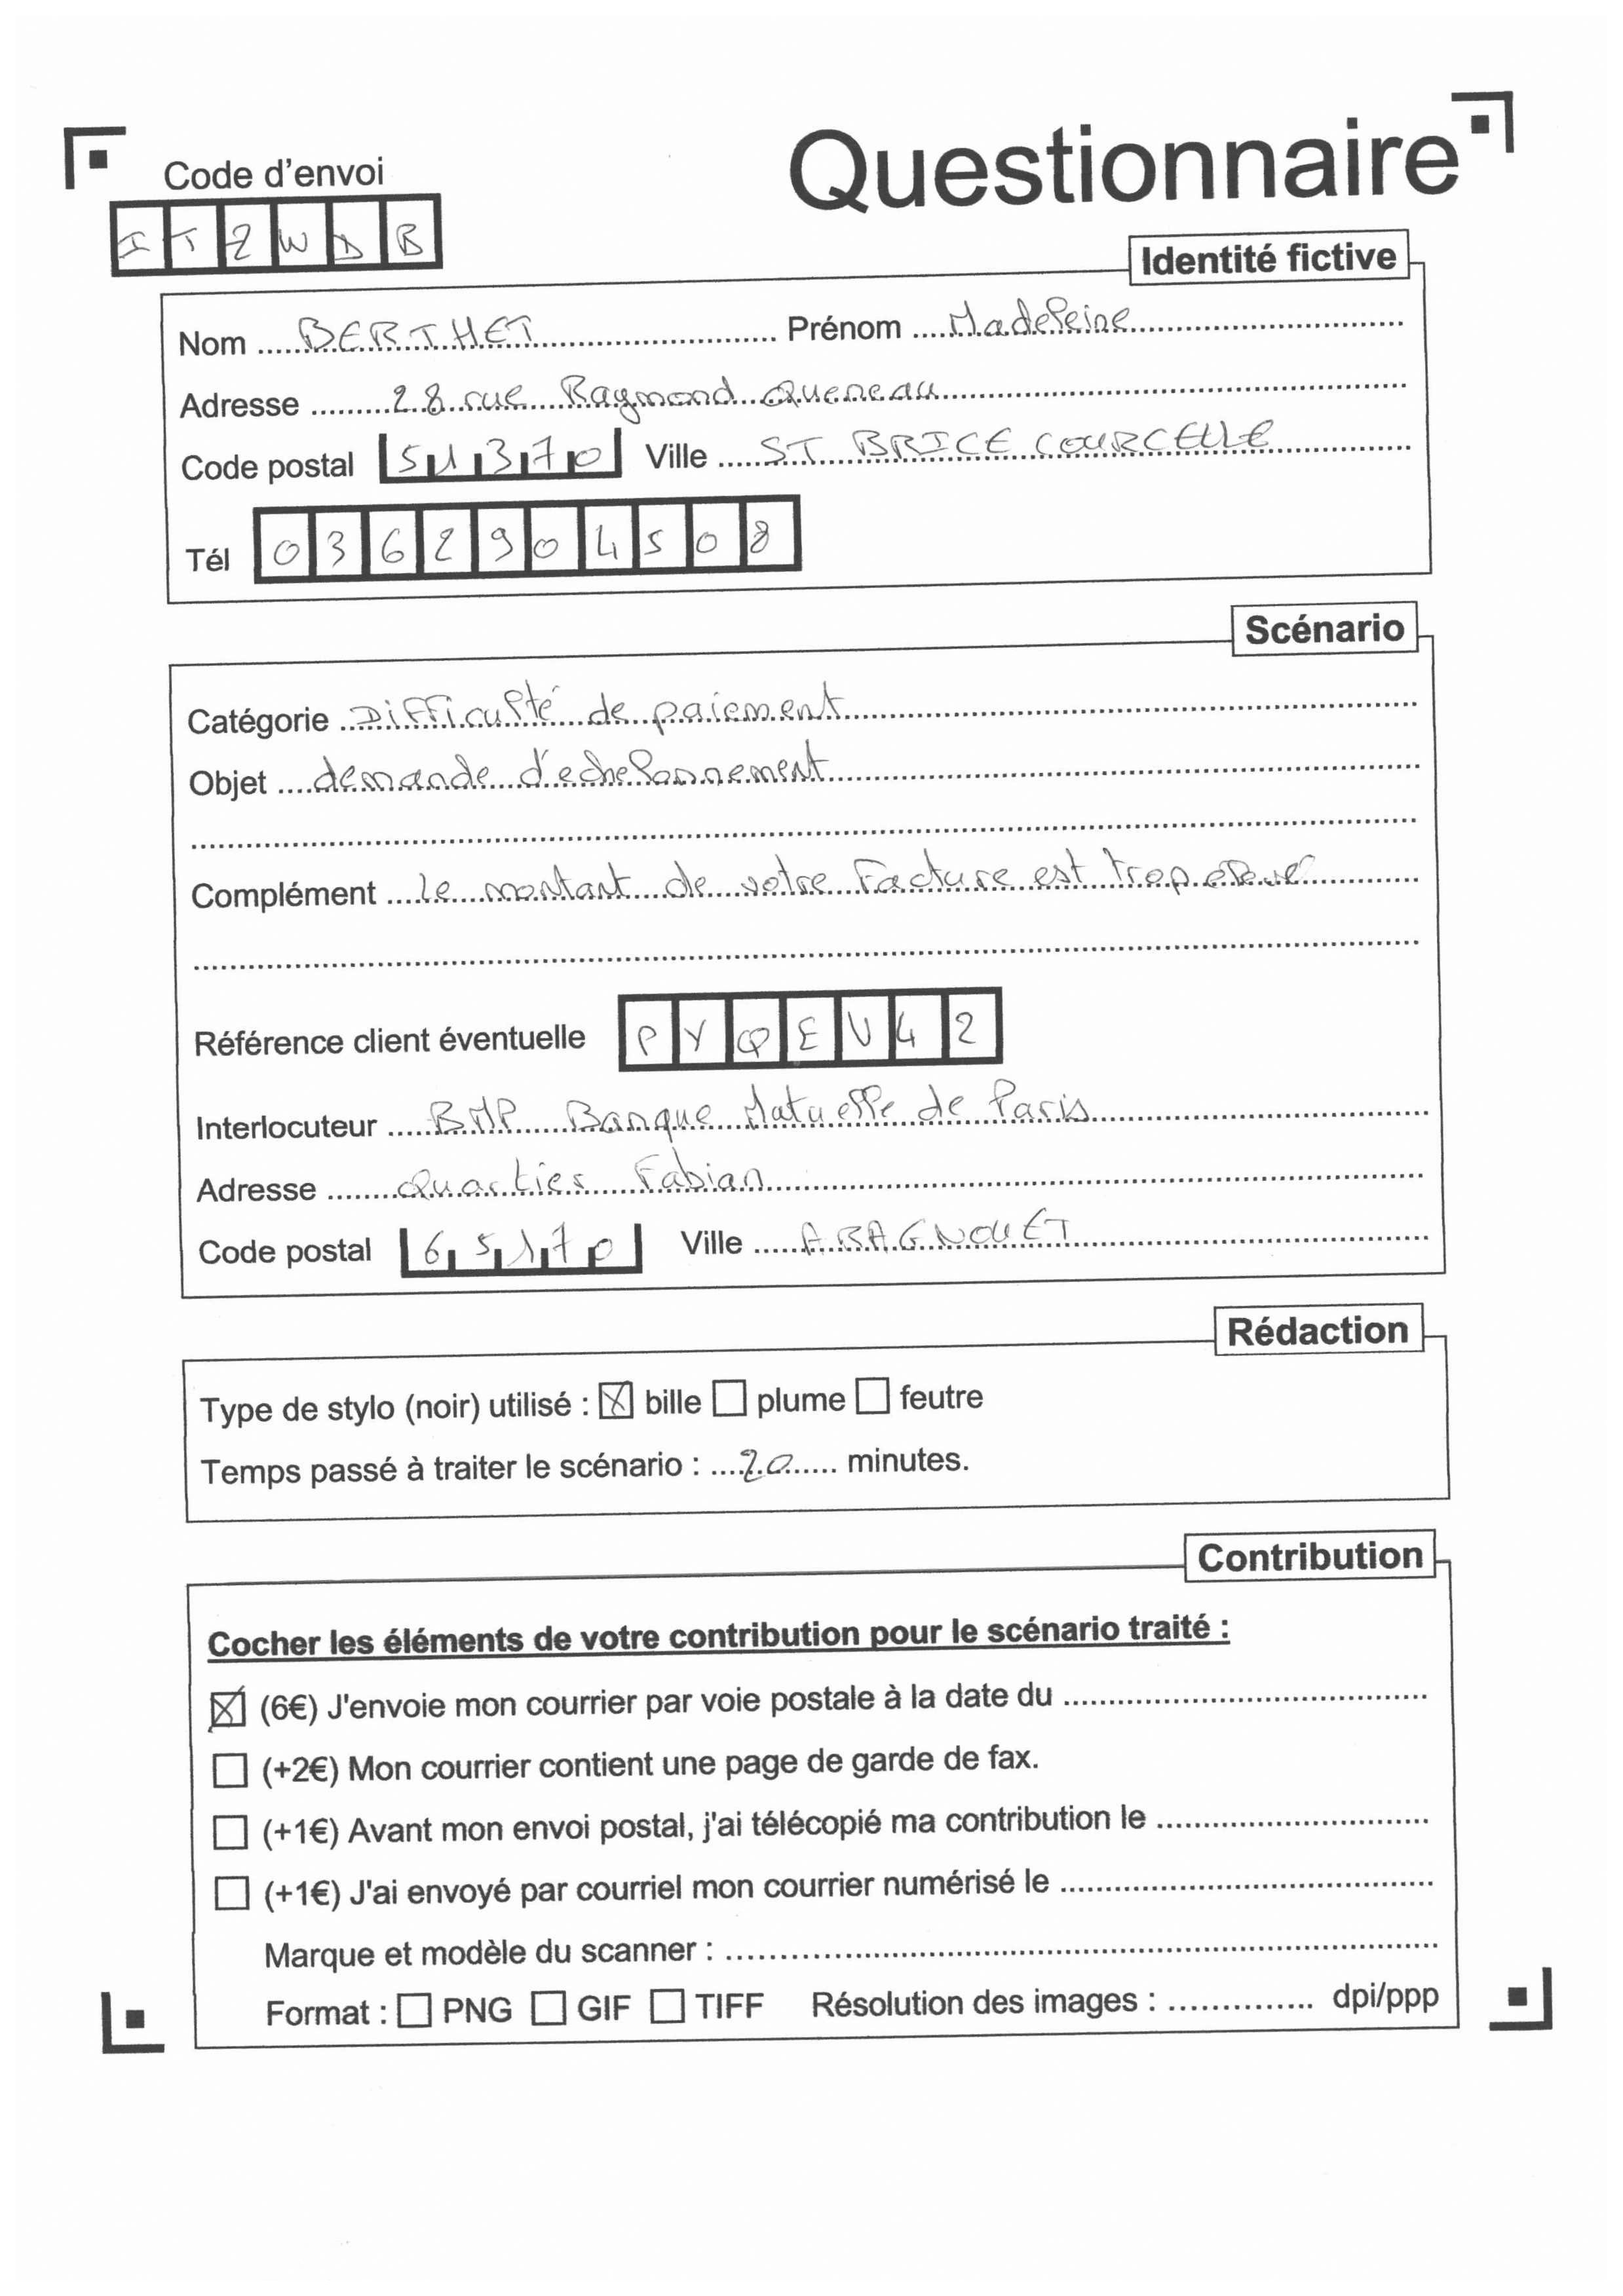 Code d'envoi
Questionnaire
ITZWDB
Identité fictive
Nom BERTHET Prénom Madeleine
Adresse 28 rue Raymond Queneau
Code postal 51370 Ville ST BRICE COURCELLE
Tél 0362904508
Scénario
Catégorie Difficulté de paiement
Objet demande d'echelonnement
Complément Le montant de votre facture est trop élevé
Référence client éventuelle PYQEV42
Interlocuteur BMP Banque Mutuelle de Paris
Adresse Quartier Fabian
Code postal 65170 Ville ARAGNOUET
Rédaction
Type de stylo (noir) utilisé : bille plume feutre
Temps passé à traiter le scénario : 20 minutes.
Contribution
Cocher les éléments de votre contribution pour le scénario traité :
(6€) J'envoie mon courrier par voie postale à la date du
(+2€) Mon courrier contient une page de garde de fax.
(+1€) Avant mon envoi postal, j'ai télécopié ma contribution le
(+1€) J'ai envoyé par courriel mon courrier numérisé le
Marque et modèle du scanner :
Format : PNG GIF TIFF Résolution des images : dpi/ppp